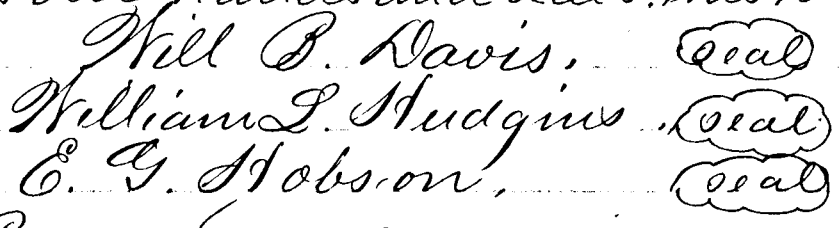 Will B. Davis. Seal
William L. Hudgins. Seal
E. G. Hobson. Seal